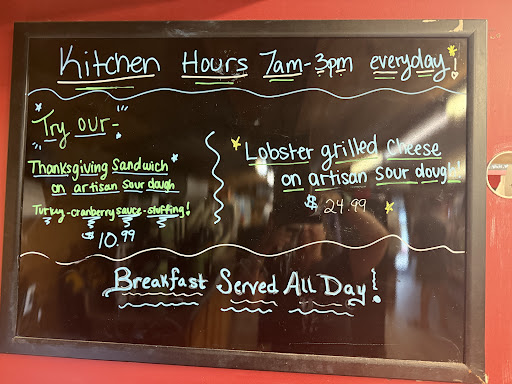 Kitchen Hours 7am-3pm everyday!
Try our-
Thanksgiving Sandwich
on artisan sour dough
Turkey-cranberry sauce-stuffing!
$10.99
Lobster grilled Cheese
on artisan sour dough!
$24.99
Breakfast Served All Day!